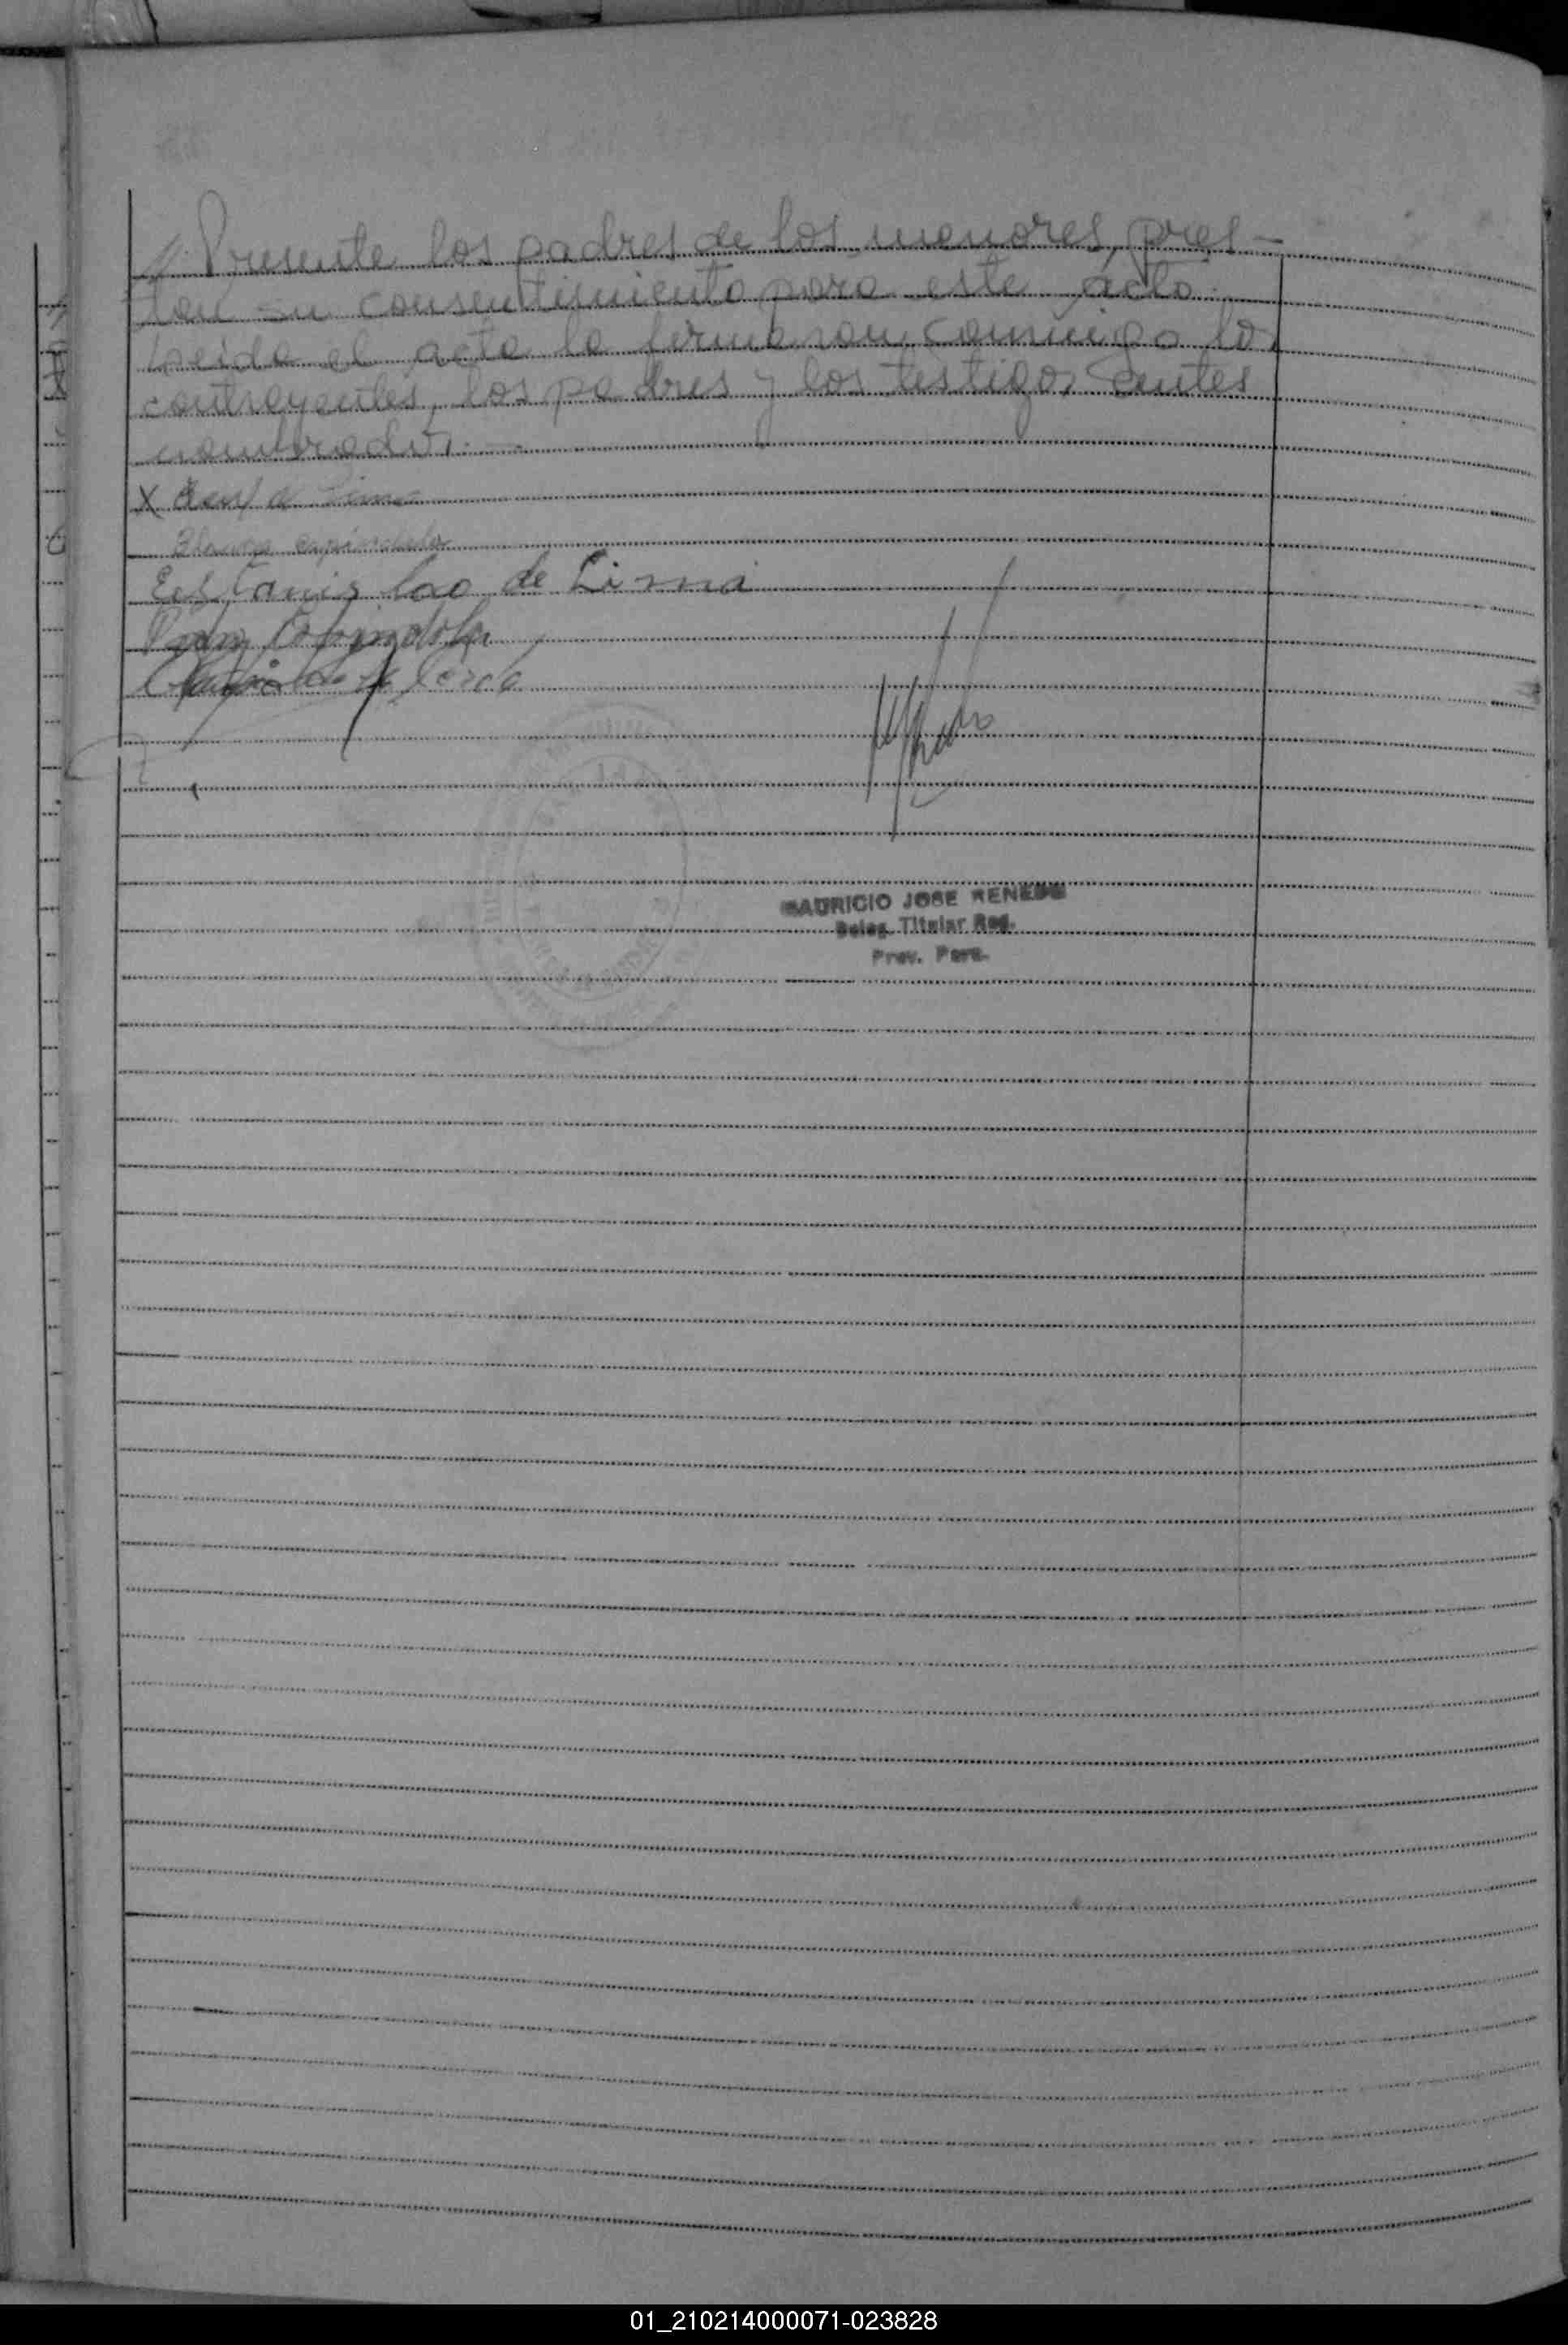 Presente los padres de los menores, pres-
tan su consentimiento para este acto.
Leida el acta la firmaron conmigo los
contrayentes, los padres y los testigos antes
nombrados. -
X de Lima
Blanca espindola
Estanislao de Lima
Espindola
MAURICIO JOSE RENEDO
Deleg. Titular Reg.
Prov. Pers.
01_210214000071-023828